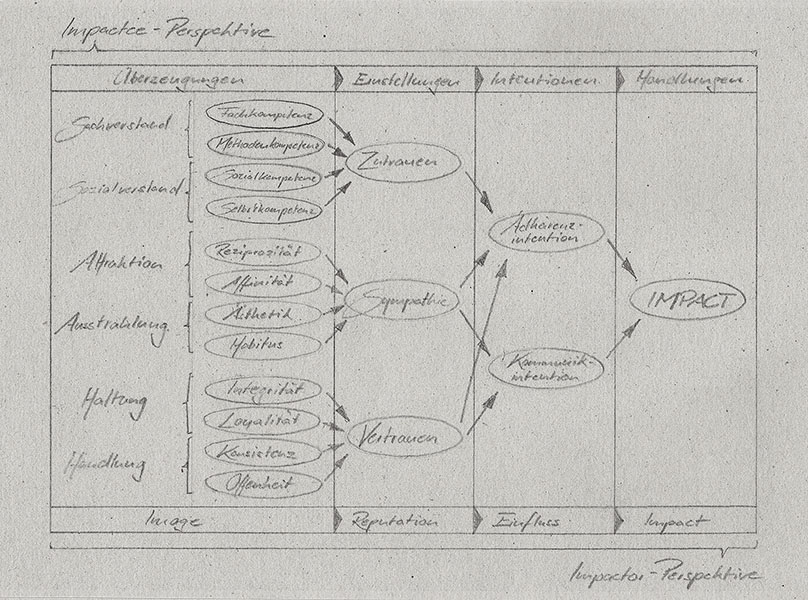 Impactee-Perspektive
Überzeugungen
Einstellungen
Intentionen
Handlungen
Sachverstand
Fachkompetenz
Methodenkompetenz
Sozialverstand
Sozialkompetenz
Selbstkompetenz
Attraktion
Reziprozität
Affinität
Ausstrahlung
Ästhetik
Habitus
Haltung
Integrität
Loyalität
Handlung
Konsistenz
Offenheit
Zutrauen
Sympathie
Vertrauen
Adhärenz-
intention
Kommunik-
intention
IMPACT
Image
Reputation
Einfluss
Impact
Impactor-Perspektive